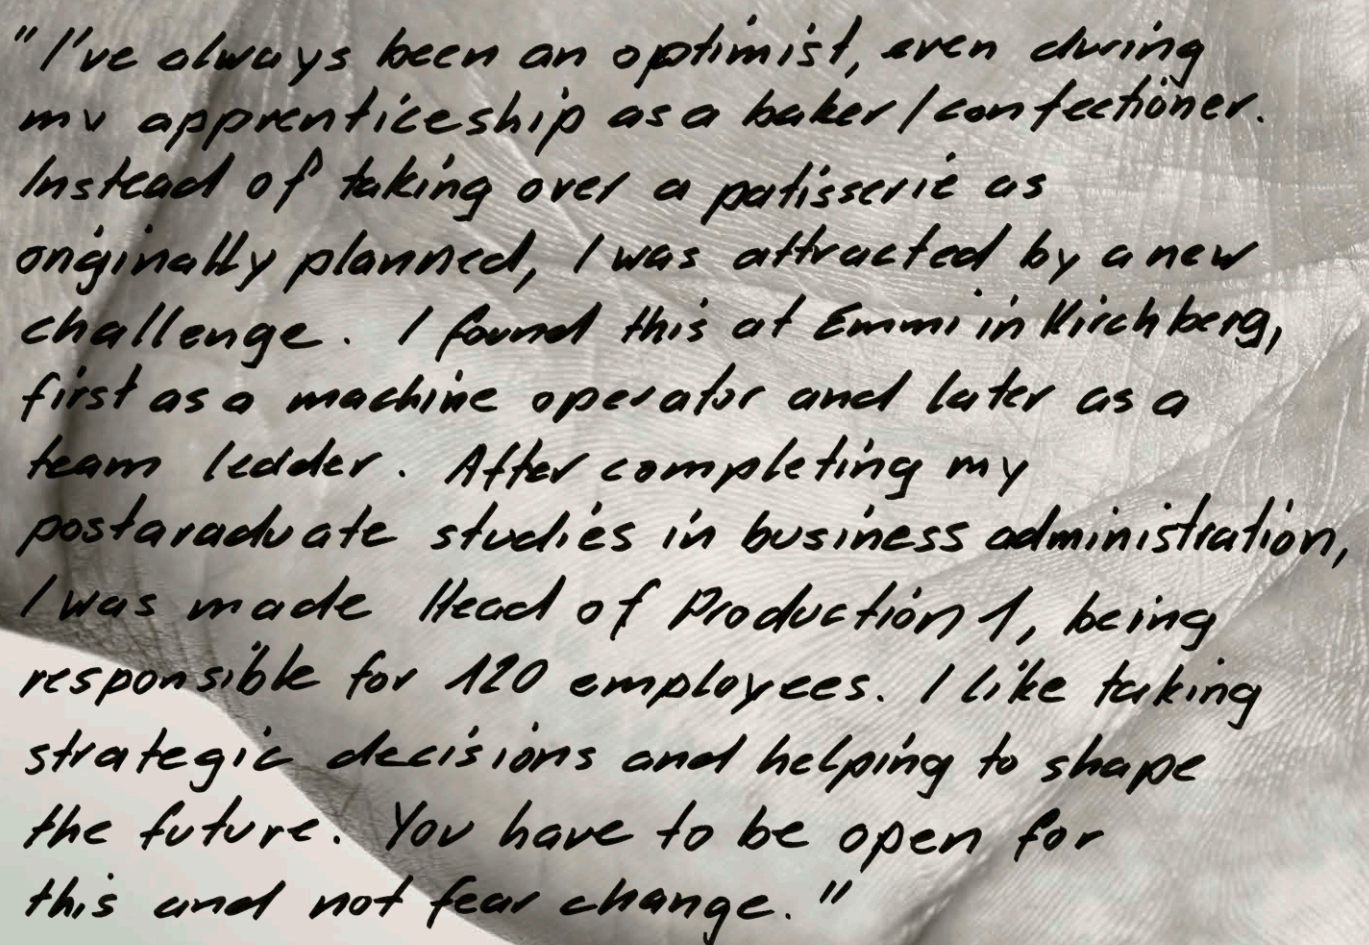 "I've always been an optimist, even during
my apprenticeship as a baker/confectioner.
Instead of taking over a patisserie as
originally planned, I was attracted by a new
challenge. I found this at Emmi in Kirchberg,
first as a machine operator and later as a
team leader. After completing my
postgraduate studies in business administration,
I was made Head of Production 1, being
responsible for 120 employees. I like taking
strategic decisions and helping to shape
the future. You have to be open for
this and not fear change."